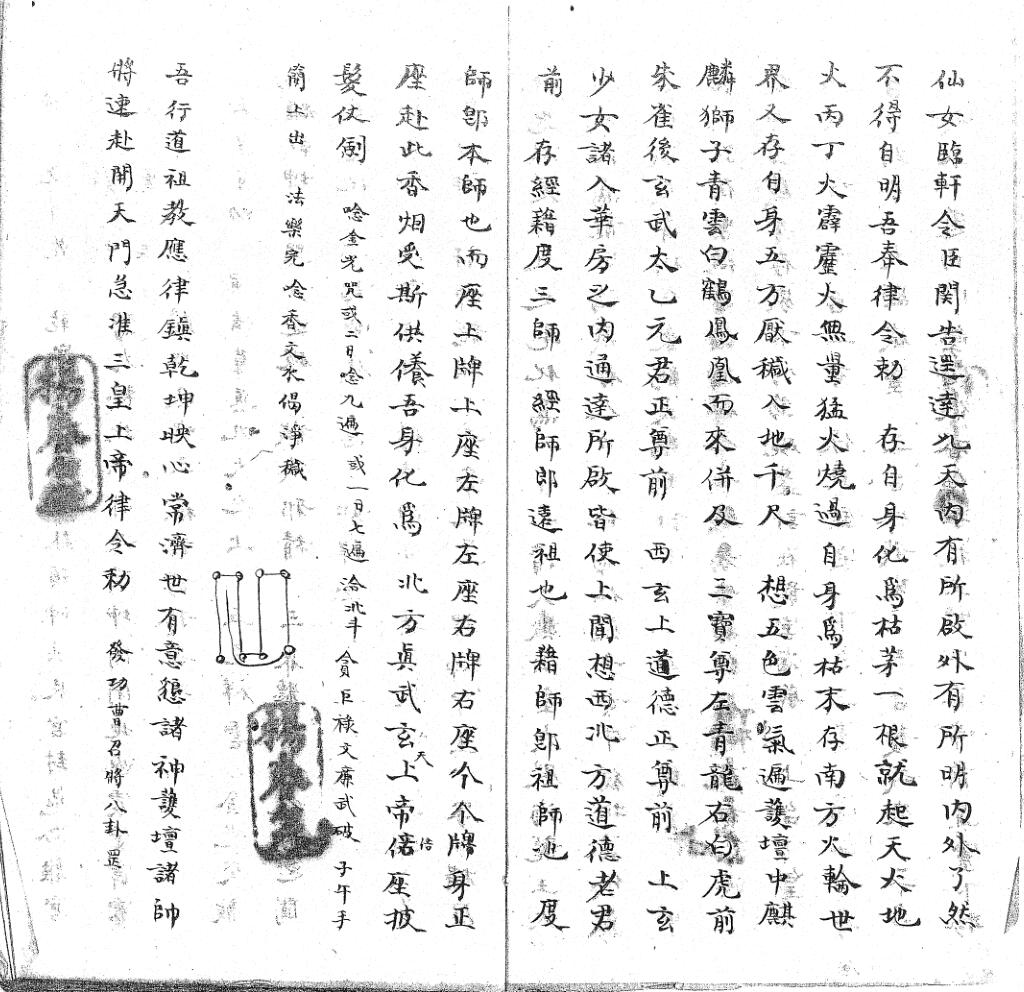 仙女臨軒令臣関告逕達九天内有所啟外有所明内外了然
不得自明吾奉律令勅　存自身化爲枯茅一根就起天火地
火丙丁火霹靂火無量猛火燒過自身爲枯末存南方火輪世
界又存自身五方厭穢入地千尺　想五色雲氣遍護壇中麒
麟獅子青雲白鶴鳳凰而來併及　三寶尊左青龍右白虎前
朱雀後玄武太乙元君正尊前　西玄上道德正尊前　上玄
少女諸入華房之内通達所啟皆使上聞想西北方道德老君
前　存經藉度三師　經師郎遠祖也　藉師郎祖師也　度
師郎本師也而座上牌上座左牌左座右牌右座个个牌身正
座赴此香烟受斯供養吾身化爲　北方真武玄天上帝　座披
髮仗劍　唸金光咒或二日唸九遍　或一日七遍洽北斗　貪巨祿文廉武破　子午手
簡上出　法樂完唸香文水偈淨穢
吾行道祖教應律鎮乾坤映心常濟世有意　諸神護壇諸帥
將速赴開天門急准三皇上帝律令勅　發功曹召將八卦罡